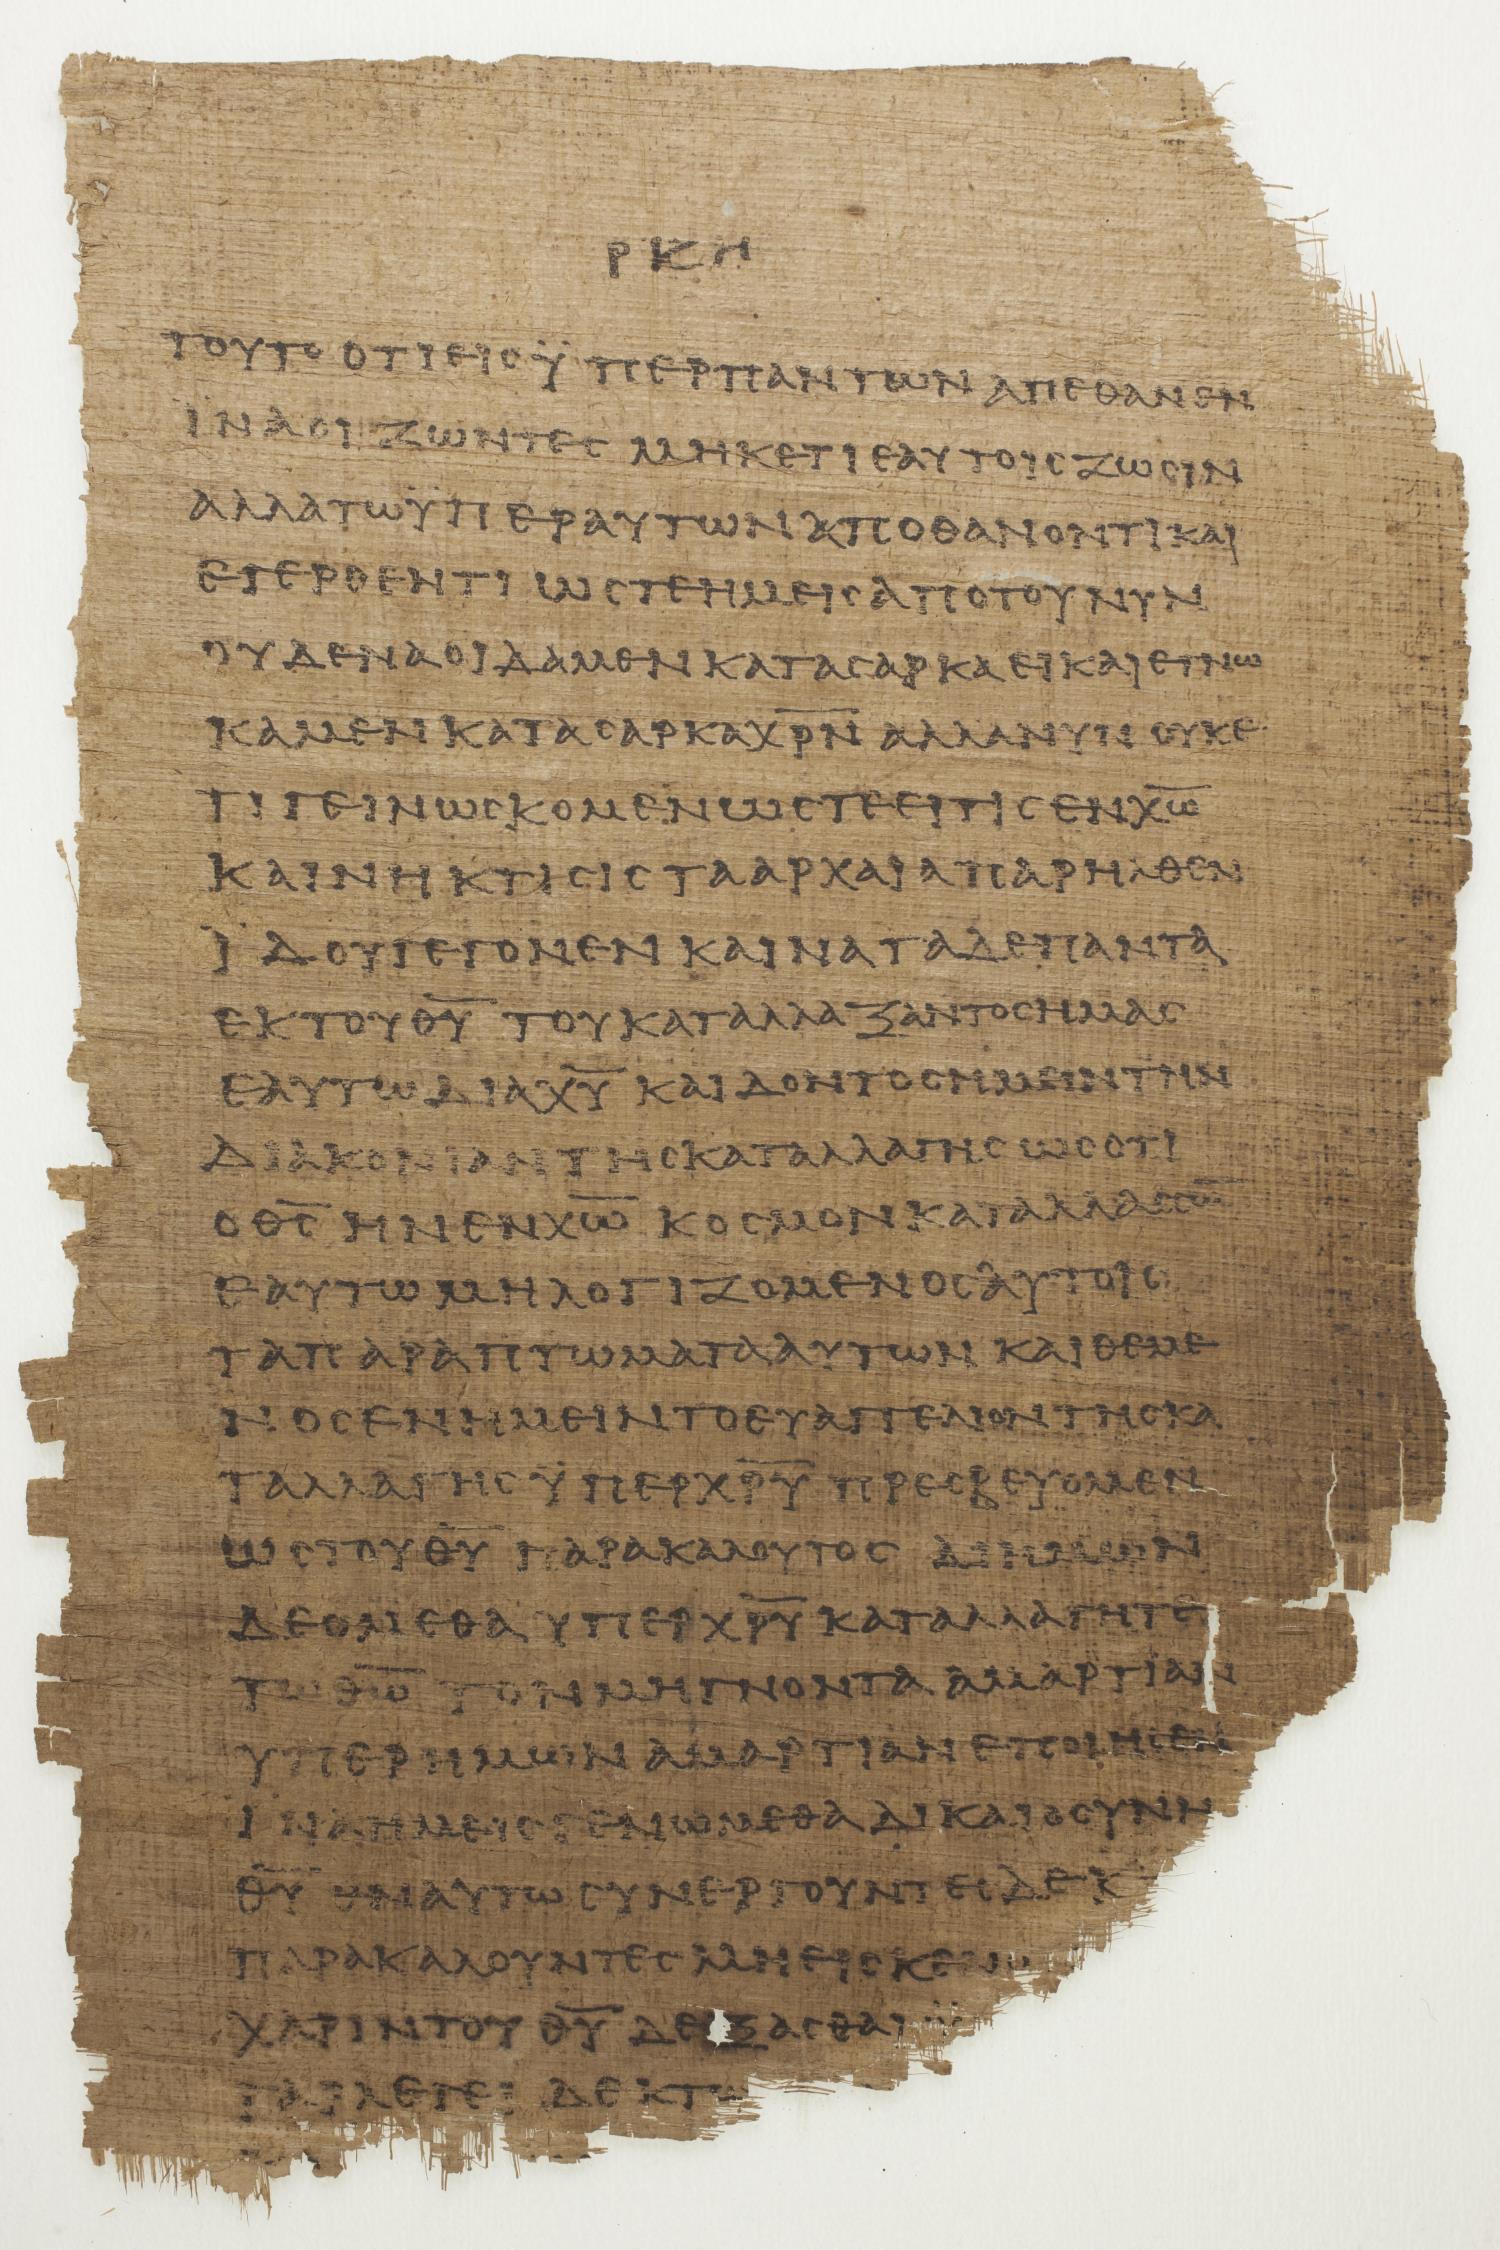 ΡΚΗ
ΤΟΥΤΟ ΟΤΙ ΕΙϹ Ϋ̈ΠΕΡ ΠΑΝΤΩΝ ΑΠΕΘΑΝΕΝ
ΪΝΑ ΟΙ ΖΩΝΤΕϹ ΜΗΚΕΤΙ ΕΑΥΤΟΙϹ ΖΩϹΙΝ
ΑΛΛΑ ΤΩ ΫΠΕΡ ΑΥΤΩΝ ΑΠΟΘΑΝΟΝΤΙ ΚΑΙ
ΕΓΕΡΘΕΝΤΙ ΩϹΤΕ ΗΜΕΙϹ ΑΠΟ ΤΟΥ ΝΥΝ
ΟΥΔΕΝΑ ΟΙΔΑΜΕΝ ΚΑΤΑ ϹΑΡΚΑ ΕΙ ΚΑΙ ΕΓΝΩ
ΚΑΜΕΝ ΚΑΤΑ ϹΑΡΚΑ Χ̅Ρ̅Ν̅ ΑΛΛΑ ΝΥΝ ΟΥΚΕ
ΤΙ ΓΕΙΝΩϹΚΟΜΕΝ ΩϹΤΕ ΕΙ ΤΙϹ ΕΝ Χ̅Ω̅
ΚΑΙΝΗ ΚΤΙϹΙϹ ΤΑ ΑΡΧΑΙΑ ΠΑΡΗΛΘΕΝ
ΪΔΟΥ ΓΕΓΟΝΕΝ ΚΑΙΝΑ ΤΑ ΔΕ ΠΑΝΤΑ
ΕΚ ΤΟΥ Θ̅Υ̅ ΤΟΥ ΚΑΤΑΛΛΑΞΑΝΤΟϹ ΗΜΑϹ
ΕΑΥΤΩ ΔΙΑ Χ̅Υ̅ ΚΑΙ ΔΟΝΤΟϹ ΗΜΕΙΝ ΤΗΝ
ΔΙΑΚΟΝΙΑΝ ΤΗϹ ΚΑΤΑΛΛΑΓΗϹ ΩϹ ΟΤΙ
Ο Θ̅Ϲ̅ ΗΝ ΕΝ Χ̅Ω̅ ΚΟϹΜΟΝ ΚΑΤΑΛΛΑϹϹΩ̅
ΕΑΥΤΩ ΜΗ ΛΟΓΙΖΟΜΕΝΟϹ ΑΥΤΟΙϹ
ΤΑ ΠΑΡΑΠΤΩΜΑΤΑ ΑΥΤΩΝ ΚΑΙ ΘΕΜΕ
ΝΟϹ ΕΝ ΗΜΕΙΝ ΤΟ ΕΥΑΓΓΕΛΙΟΝ ΤΗϹ ΚΑ
ΤΑΛΛΑΓΗϹ ΫΠΕΡ Χ̅Ρ̅Υ̅ ΠΡΕϹΒΕΥΟΜΕΝ
ΩϹ ΤΟΥ Θ̅Υ̅ ΠΑΡΑΚΑΛΟΥΤΟϹ ΔΙ ΗΜΩΝ
ΔΕΟΜΕΘΑ ΥΠΕΡ Χ̅Ρ̅Υ̅ ΚΑΤΑΛΛΑΓΗΤΕ
ΤΩ Θ̅Ω̅ ΤΟΝ ΜΗ ΓΝΟΝΤΑ ΑΜΑΡΤΙΑΝ
ΥΠΕΡ ΗΜΩΝ ΑΜΑΡΤΙΑΝ ΕΠΟΙΗϹΕΝ
ΪΝΑ ΗΜΕΙϹ ΓΕΝΩΜΕΘΑ ΔΙΚΑΙΟϹΥΝΗ
Θ̅Υ̅ ΕΝ ΑΥΤΩ ϹΥΝΕΡΓΟΥΝΤΕϹ ΔΕ Κ
ΠΑΡΑΚΑΛΟΥΝΤΕϹ ΜΗ ΕΙϹ ΚΕΝΟ
ΧΑΡΙΝ ΤΟΥ Θ̅Υ̅ ΔΕΞΑϹΘΑΙ Ϋ
ΓΑΡ ΛΕΓΕΙ ΔΕΚΤΩ